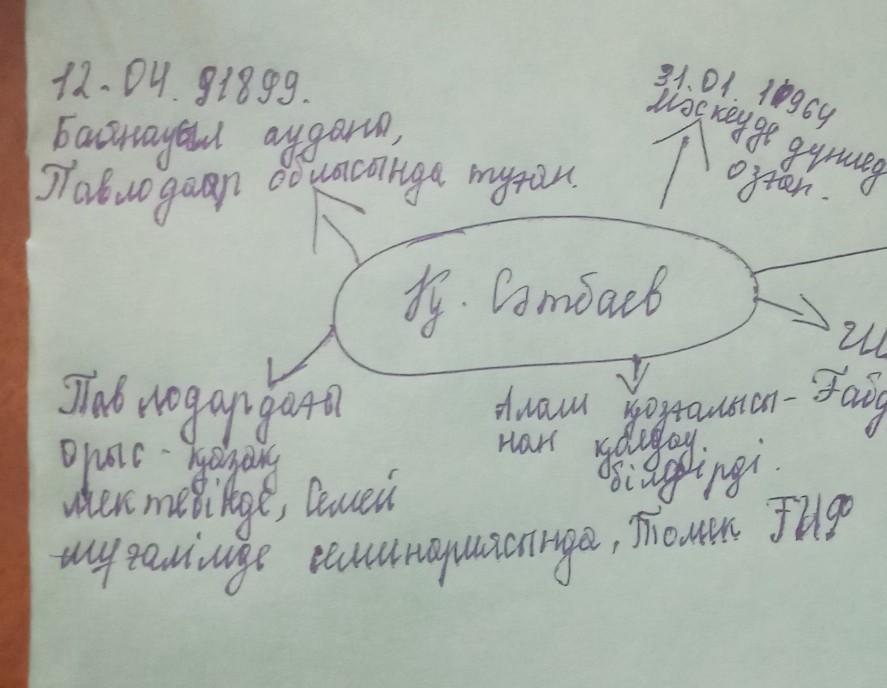 12.04. 1899.
Баянауыл ауданы,
Павлодар облысында туған.
31.01 1964
Мәскеуде дүниед
озған.
Қ. Сәтбаев
Павлодардағы
орыс - қазақ
мектебінде, Семей
мұғалімде семинариясында, Томск
Алаш қозғалысы-
нан қолдау
білдірді.
Ғабд